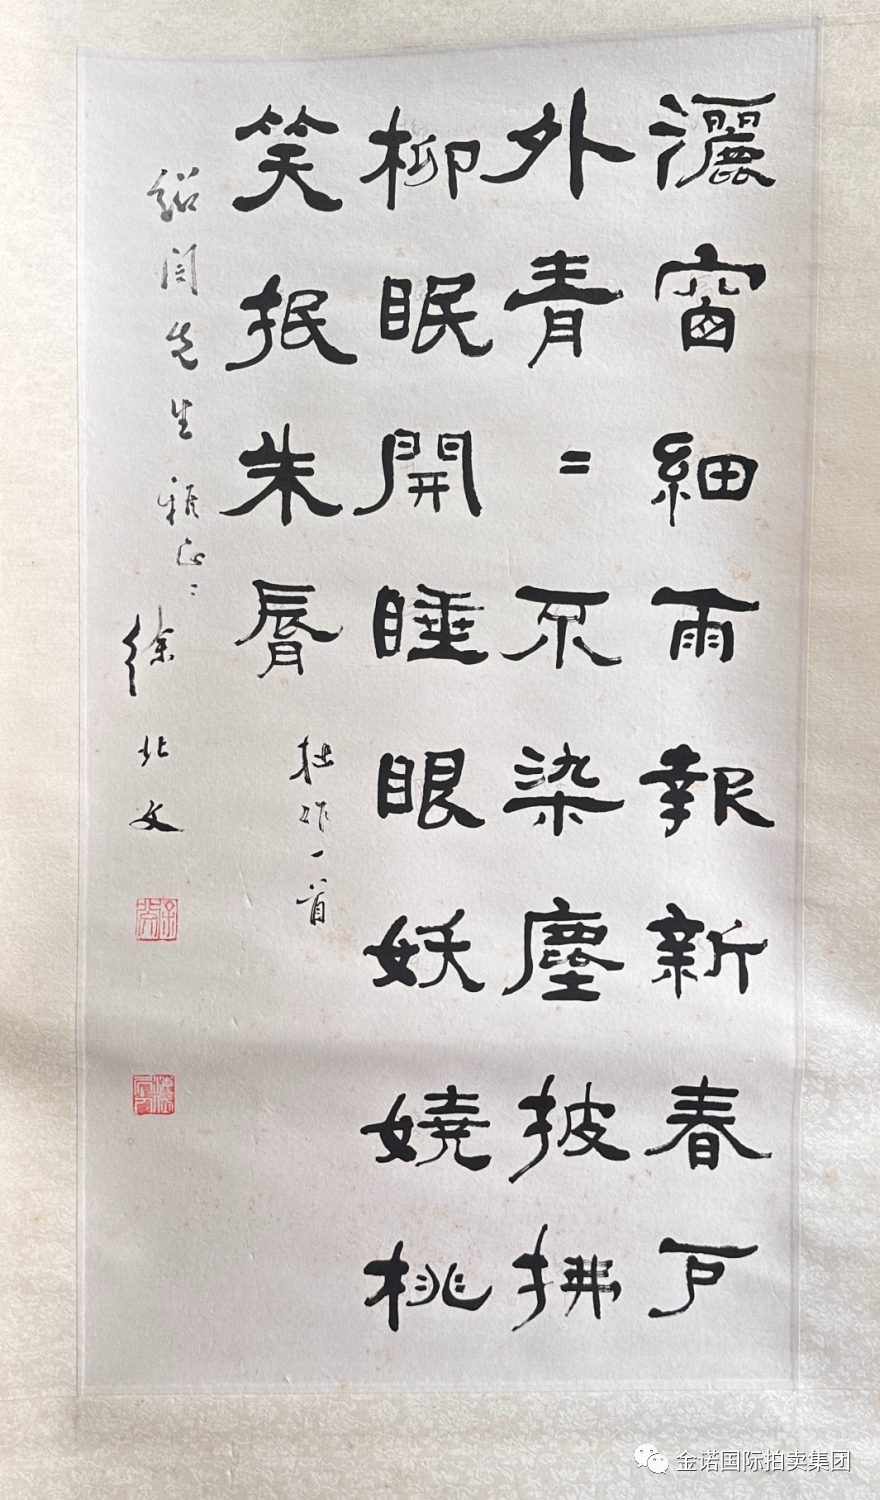 灑窗細雨報新春戶
外青〻不染塵披拂
柳眠開睡眼妖嬈桃
笑抿朱脣
拙作一首
紹閆先生雅正〻
徐北文
金诺国际拍卖集团